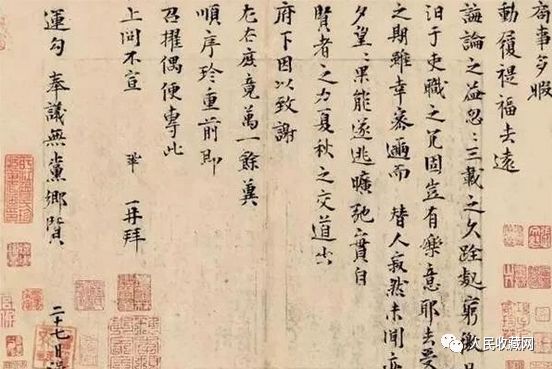 局事多暇
動履禔福去遠
誨論之益忽〻三載之久跧處窮徼日
汩于吏職之冗固豈有樂意耶去受
之期雖幸密邇而 替人寂然未聞亦
夕望〻果能遂逃曠弛實自
賢者之力夏秋之交道出
府下因以致謝
左右庶竟萬一餘冀
順序珍重前即
召擢偶便專此
上問不宣 鞏 再拜
運勾 奉議無黨鄉賢
二十七日謹
人民收藏网